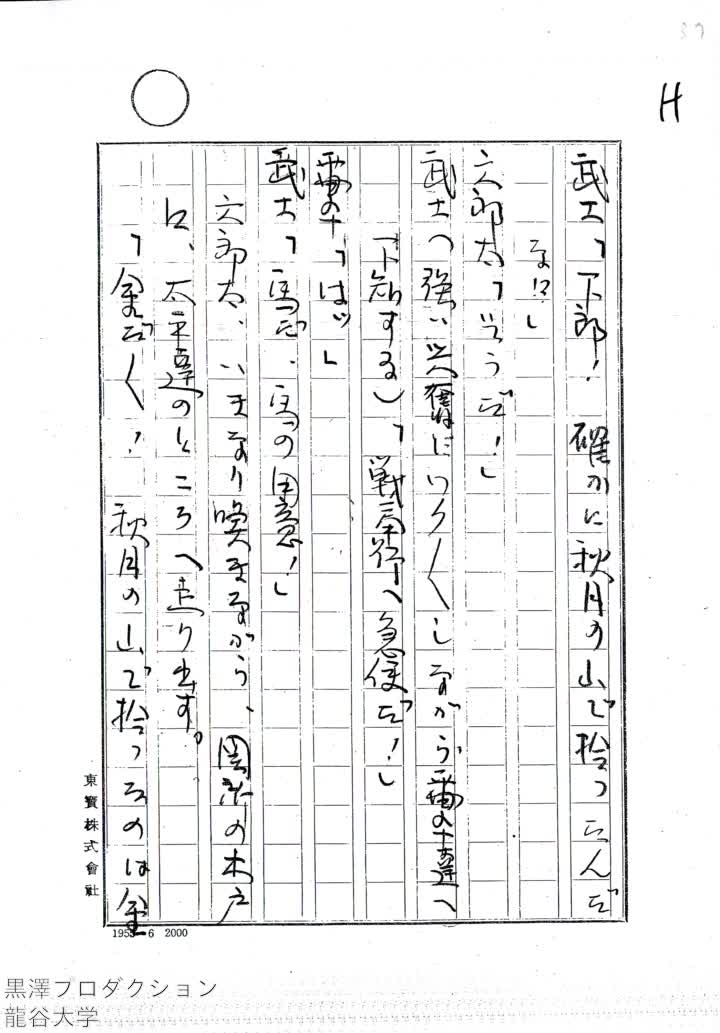 H
武士「下郎! 確かに秋月の山で拾ったんだ
な!?」
六郎太「そうだ!」
武士(強い興奮にわく〳〵しながら番卒達へ
下知する)「戦奉行へ急使だ!」
番卒「はッ」
武士「馬だ、馬の用意!」
六郎太、いきなり喚きながら、関所の木戸
口、太平達のところへ走り出す。
「金だ〳〵! 秋月の山で拾ったのは金
東寳株式會社
6 2000
黒澤プロダクション
龍谷大学